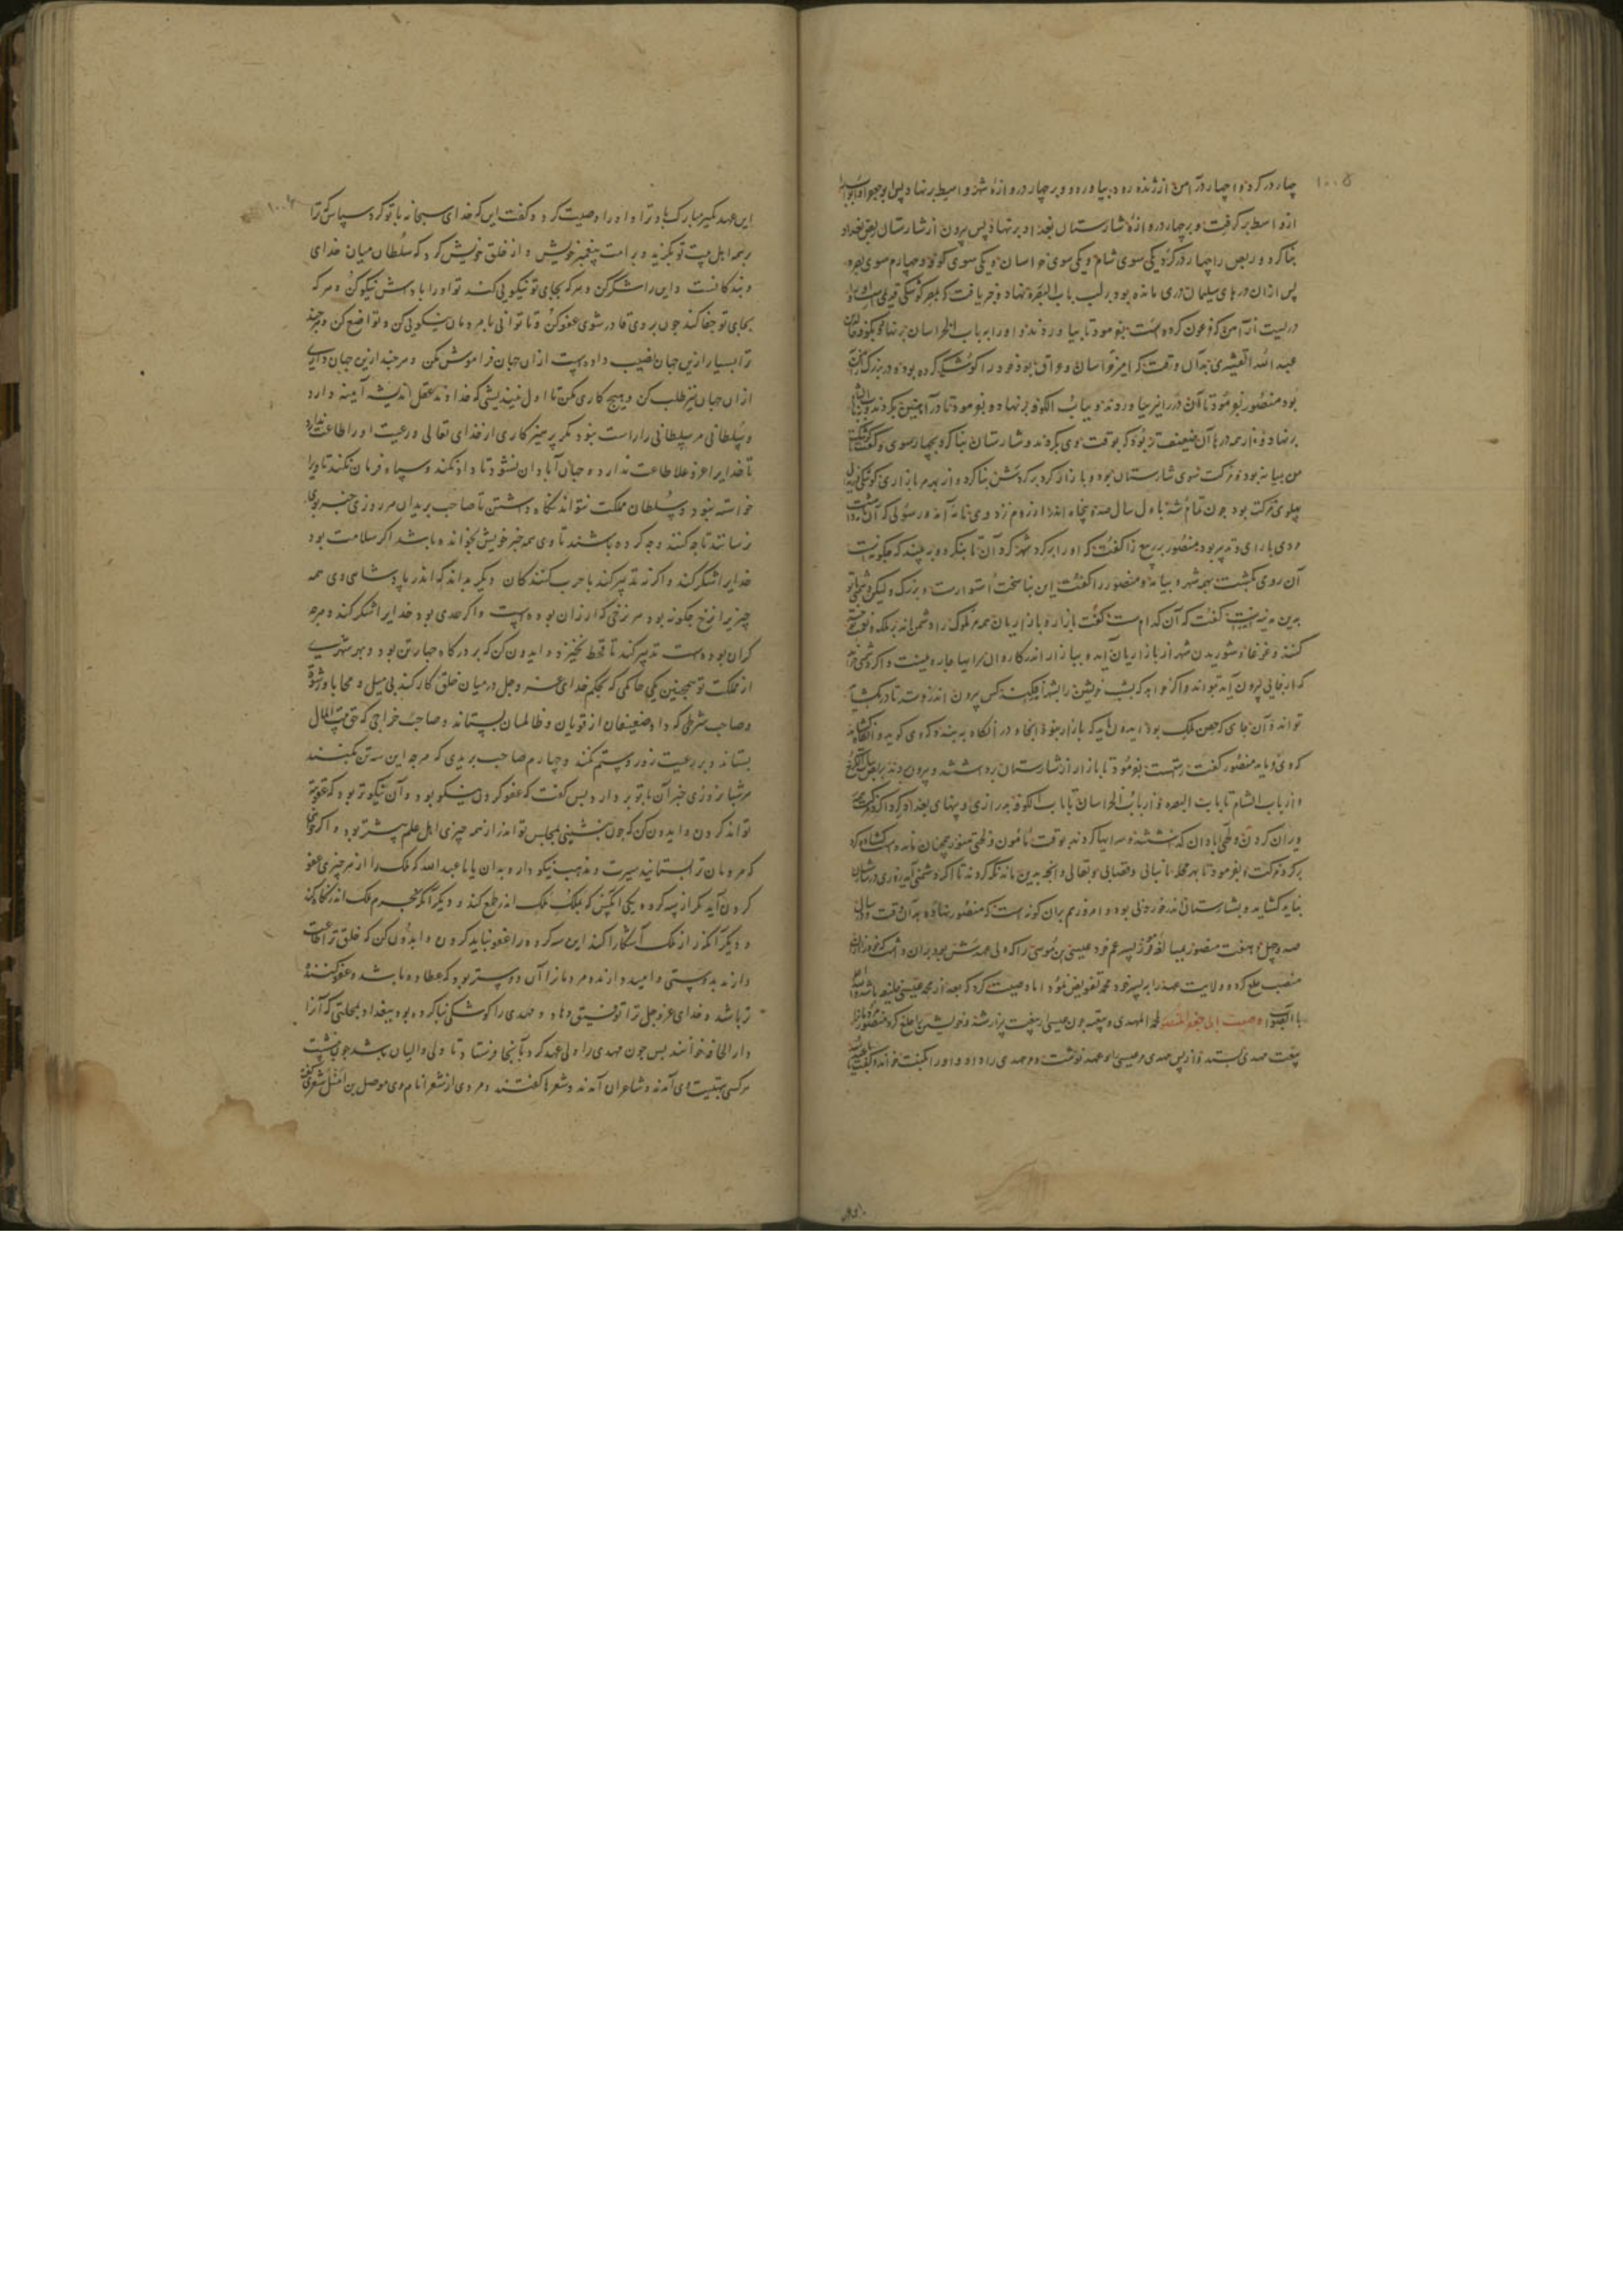 ۱۰۰۵
چهار در کردند و چهار در آهنین از زنده رود بیاوردند و بر چهار دروازهٔ شهر واسط بر نهاد پس
از واسط بر کرفت و بر چهار دروازهٔ شارستان بغداد بر نهاد پس بیرون از شارستان ربض بغداد
بنا کرد و ربض را چهار در کرد یکی سوی شام و یکی سوی خراسان و یکی سوی کوفه و چهارم سوی بصره
پس از ان درهای سلیمان دری مانده بود بر لب باب البصره نهاد و خبر یافت که بمصر کوشکی
دریست از آهن که فرعون کرده است بفرمود تا بیاوردند و او را به باب الخراسان بر نهاد و بکوفه
عبد الله القشیری بدان وقت که امیر خراسان و عراق بود خود را کوشکی کرده بود و در بزرک
بود منصور بفرمود تا آن در را نیز بیاوردند و بباب الکوفه بر نهاد و بفرمود تا در آهنین بکردند
بر نهاد و از همه درها آن ضعیف‌تر بود که بوقت وی بکردند و شارستان بنا کرد بچهار سوی و کوشک
من میانه بود و مزکت سوی شارستان بود و بازار کرد بر کردش بنا کرد و از بهر هر بازاری
پهلوی مزکت بود چون تمام شد باول سال صد و پنجاه اندر از روم نزد وی نامه آمد و رسولی که آن
و وی با رای و تدبیر بود منصور بربیع را کفت که او را بر کرد شهر کرد آن تا بنکرد و ببیند که چکونست
آن روی بکشت بهمه شهر و بیامد و منصور را کفت این بنا سخت استوارست و بزرک و لیکن
بدین مدینه است کفت که آن کدام است کفت بازارها بازاریان همه ملوک را دشمن اند
کنند و غوغا و شوریدن شهر از بازاریان آید و ببازار اندر کاروان سرایها چاره نیست و اکر دشمنی
که از جایی بیرون آید تواند و اکر خواهد که بشب خویشتن را بشهر افکند کس بیرون اندر وست تا در بکشاید
تواند و آن جای که حصن ملک بود ایدون باید که بازار نبود آنجا و در آنکاه به بندند که وی کوید و آنکاه
که وی فرماید منصور کفت راست بفرمود تا بازار از شارستان برداشتند و بیرون بردند بربض
و از باب الشام تا بباب البصره و از باب الخراسان تا باب الکوفه بدرازی و پهنای بغداد کرد اکرد
ویران کردن و لختی آبادان که نشستند و سرایها کردند بوقت مامون و لختی هنوز همچنان مانده است
بر کرد مزکت و بفرمود تا بهر محله نانبایی و قصابی و بقالی و آنچه بدین ماند نکه کردند تا اکر دشمنی آید
بناید کشاید و بشارستانی اندر خوردنی بود و امروز هم بران کونه است که منصور نهاده بدان وقت و سال
صد و چهل و هفت منصور پسر عم خود عیسی بن موسی را که ولی عهدش بود
منصب خلع کرد و ولایت عهد را بر پسر خود محمد تفویض نمود اما وصیت کرد که بعد از محمد عیسی خلیفه باشد
وصیت ابی جعفر المنصور لمحمد المهدی و بیعته چون عیسی از بیعت بیزار شد و خویشتن را خلع کرد منصور
بیعت مهدی بستد و از پس مهدی مر عیسی را و عهد نوشت و مهدی را داد و او را بکفت
این عهد بکیر مبارک باد ترا و او را وصیت کرد و کفت این که خدای سبحانه با تو کرد سپاس کن ترا
بر همه اهل بیت تو بکزید و بر امت پیغمبر خویش و از خلق خویش کرد که سلطان میان خدای
و بندکانست و این را شکر کن و هر که بجای تو نیکویی کند تو او را پاداش نیکو کن و هر که
بجای تو جفا کند چون بر وی قادر شوی عفو کن و تا توانی با مردمان نیکویی کن و تواضع کن و هر چند
ترا بسیار ازین جهان نصیب داده است از ان جهان فراموش مکن و هر چند ازین جهان داری
از ان جهان نیز طلب کن و هیچ کاری مکن تا اول نیندیشی که خداوند عقل اندیشه آیینه دارد
و سلطانی مر سلطانی را راست نبود مکر پرهیزکاری از خدای تعالی و رعیت او را طاعت ندارد
تا خدایرا عز و علا طاعت ندارد و جهان آبادان نشود تا داد نکند و سپاه فرمان نکند تا ویرا
خواسته نبود و سلطان مملکت نتواند نکاه داشتن تا صاحب بریدان هر روزی خبر بوی
نرسانند تا چه کنند و چه کرده باشند تا وی همه خبر خویش بخوانده باشد اکر سلامت بود
خدایرا شکر کند و اکر نه تدبیر کند با حرب کنندکان و دیکر بداند که اندر پادشاهی وی همه
چیزیرا نرخ چکونه بود هر نرخی که ارزان بوده است و اکر حدی بود خدایرا شکر کند و هر چه
کران بوده است تدبیر کند تا قحط نخیزد و ایدون کن که بر درکاه چهار تن بود و بهر شهری
از مملکت تو همچنین یکی حاکمی که بحکم خدای عز و جل در میان خلق کار کند بی میل و محابا و رشوة
و صاحب شرطی که داد ضعیفان از قویان و ظالمان بستاند و صاحب خراجی که حق بیت المال
بستاند و بر رعیت زور و ستم نکند و چهارم صاحب بریدی که هر چه این سه تن بکنند
هر شبانروزی خبر آن با تو بردارد پس کفت که عفو کردن نیکو بود و آن نیکوتر بود که عقوبة
تواند کردن و ایدون کن که چون بنشینی بمجلس تو اندر از همه چیزی اهل علم بیشتر بود و اکر خواهی
که مردمان ترا بستایند سیرت و مذهب نیکو دار و بدان یا با عبد الله که ملک را از هر چیزی عفو
کردن آید مکر از سه کروه یکی آنکس که بملک ملک اندر طمع کند و دیکر آنکه بحرم ملک اندر نکاه کند
و دیکر آنکه راز ملک آشکارا کند این سه کروه را عفو نباید کردن و ایدون کن که خلق ترا طاعت
دارند بدوستی و امید دارند و مردمانرا آن دوستر بود که عطا دهد باشد و عفو کننده
تر باشد و خدای عز و جل ترا توفیق دهاد و مهدی را کوشکی بنا کرده بود ببغداد بمحلتی که آنرا
دار الخلافه خوانند پس چون مهدی را ولی عهد کرد بآنجا فرستاد تا ولی والیان باشد چون بنشست
هر کسی بتهنیت وی آمدند و شاعران آمدند و شعرها کفتند و مردی از شعرا نام وی موصل بن